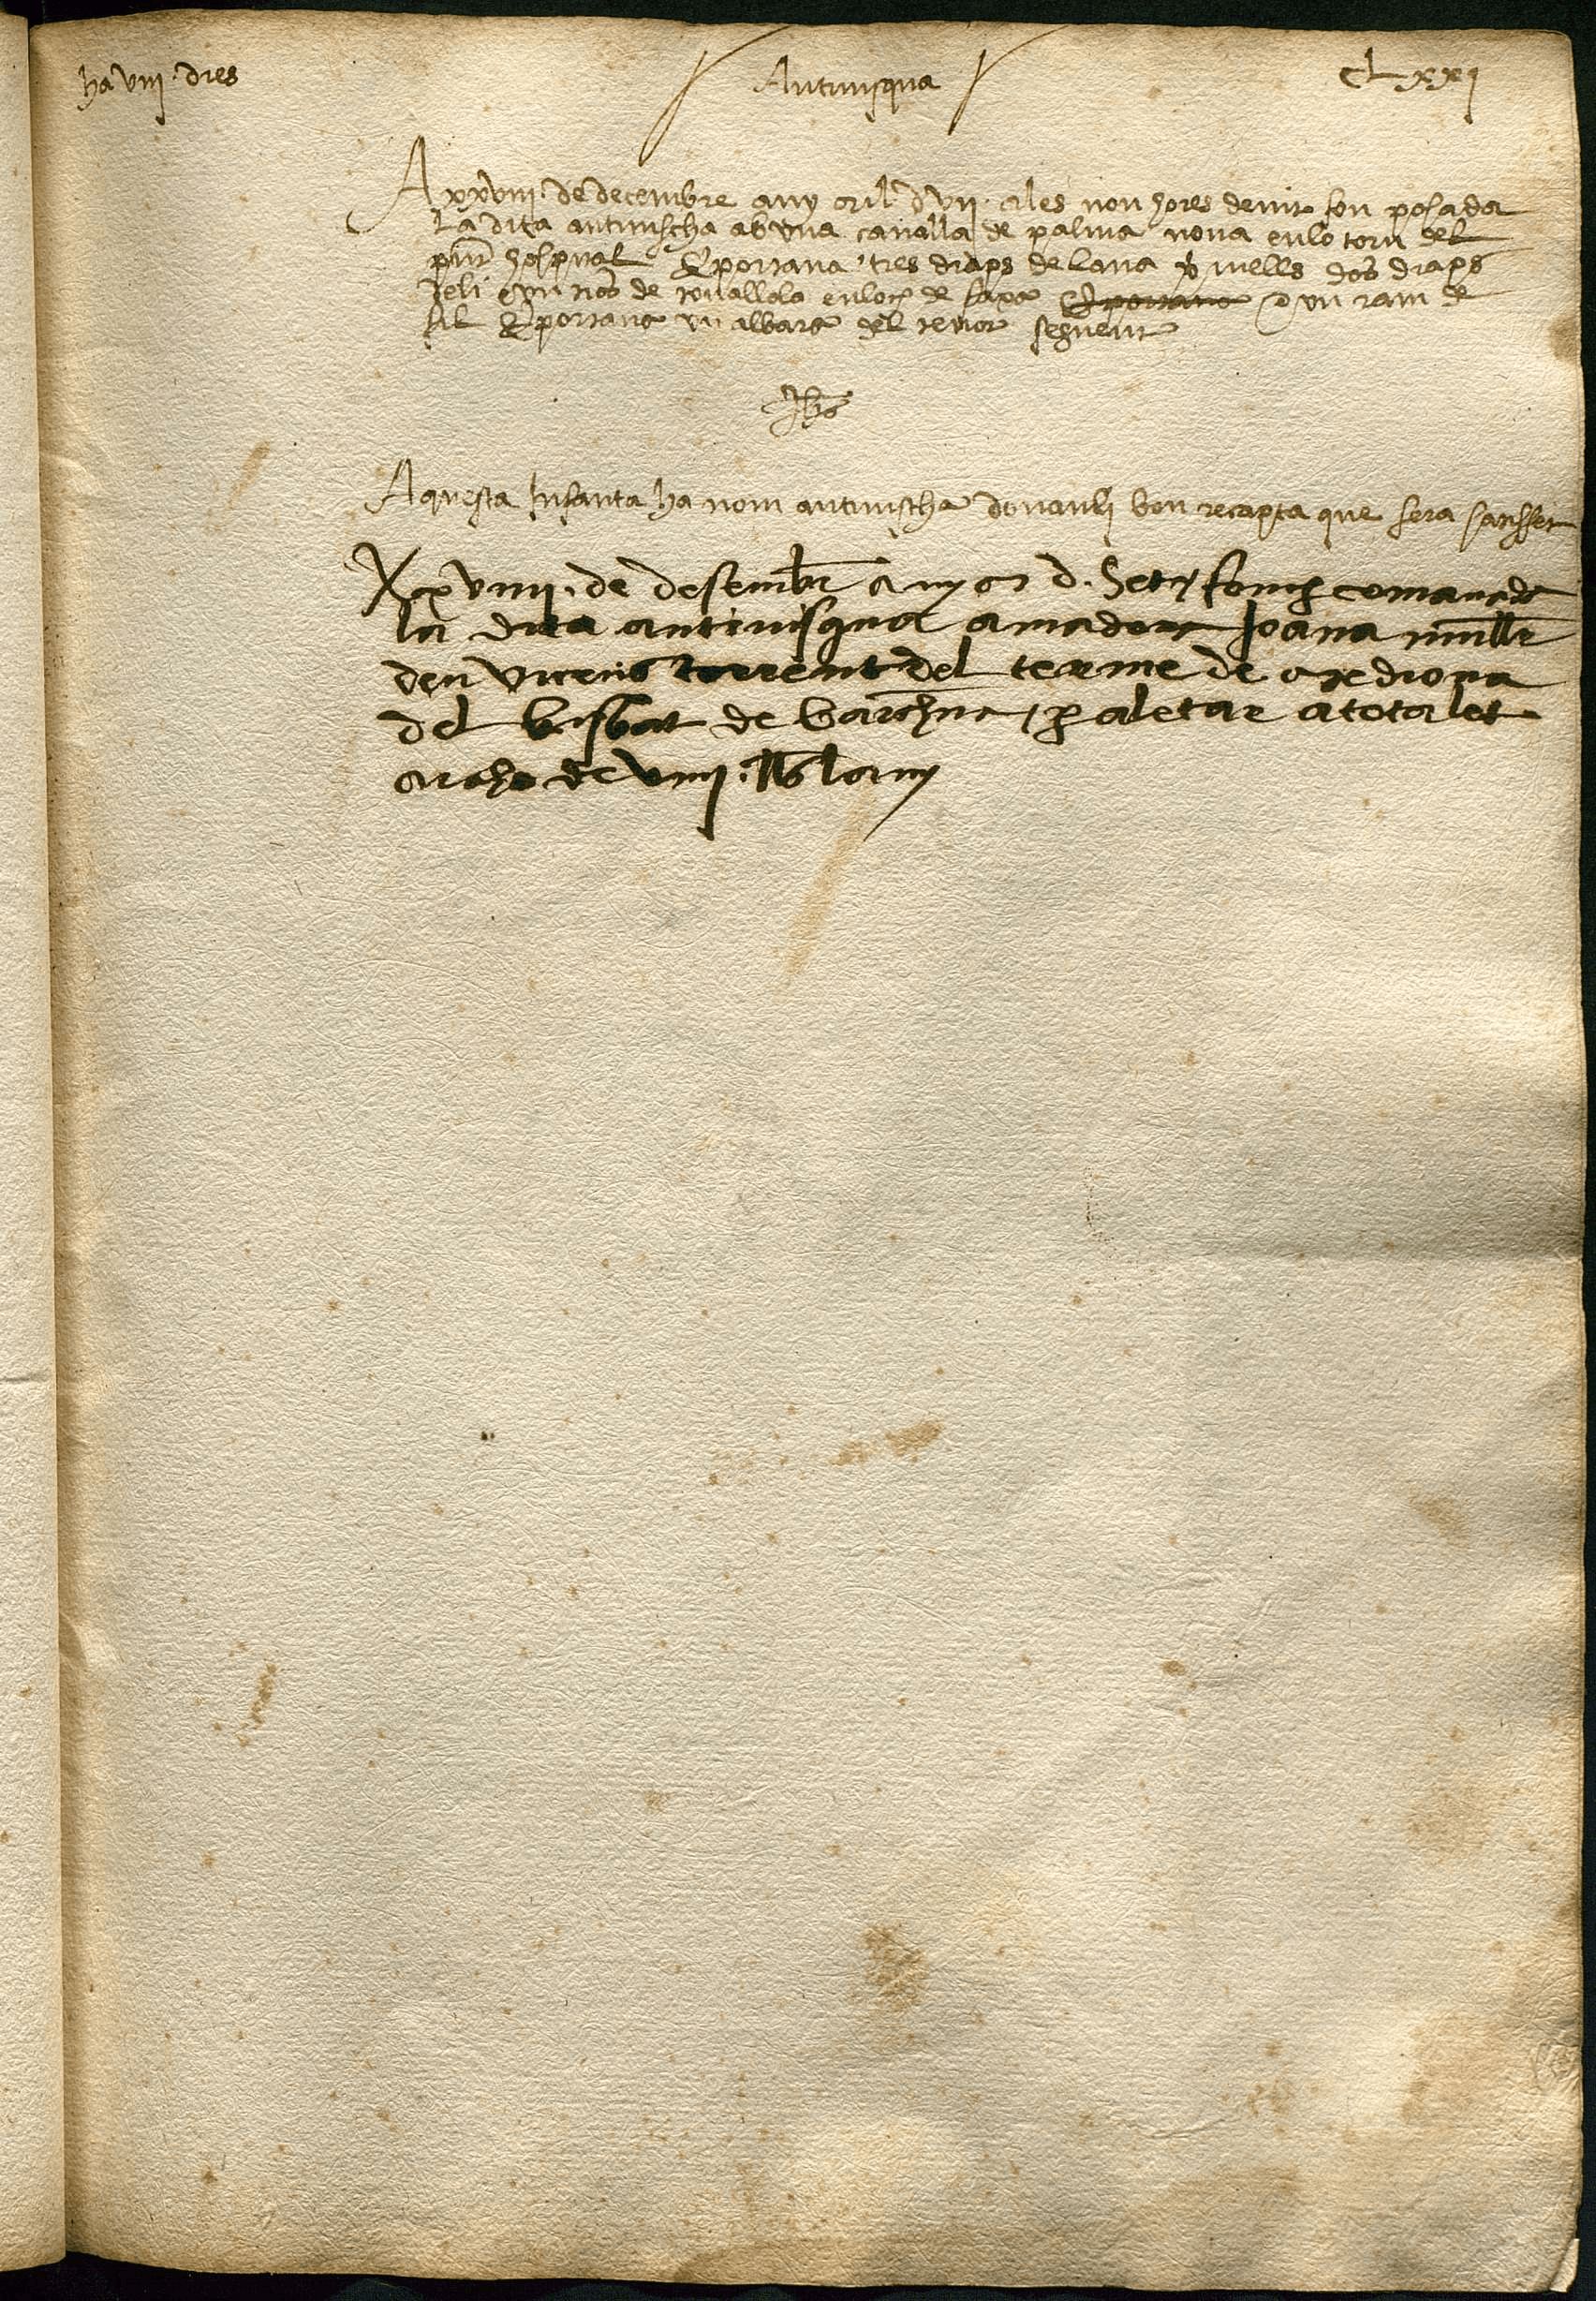 ha viiij dies
Antinisqua
CLxxj
A xxviiij de decembre any mil d vii a les nou hores de nit fou posada
la dita antinischa ab una canalla de palma nova en lo torn del
pnt hospital E portava tres draps de lana vells dos draps
de li e un tros de tovallola en loch de faxa E portava e un ram de
fil E portava un albara del tenor seguent
Jhs
Aquesta infanta ha nom antinischa donau li bon recapta que sera satisfet
A xxviiij de desembr any m d. Set fonch comanada
la dita antinisqua a madona Joana mull
den vicens torrent del terme de mediona
del bisbat de barchna p aletar a tota let
a raho de viiij ll lany